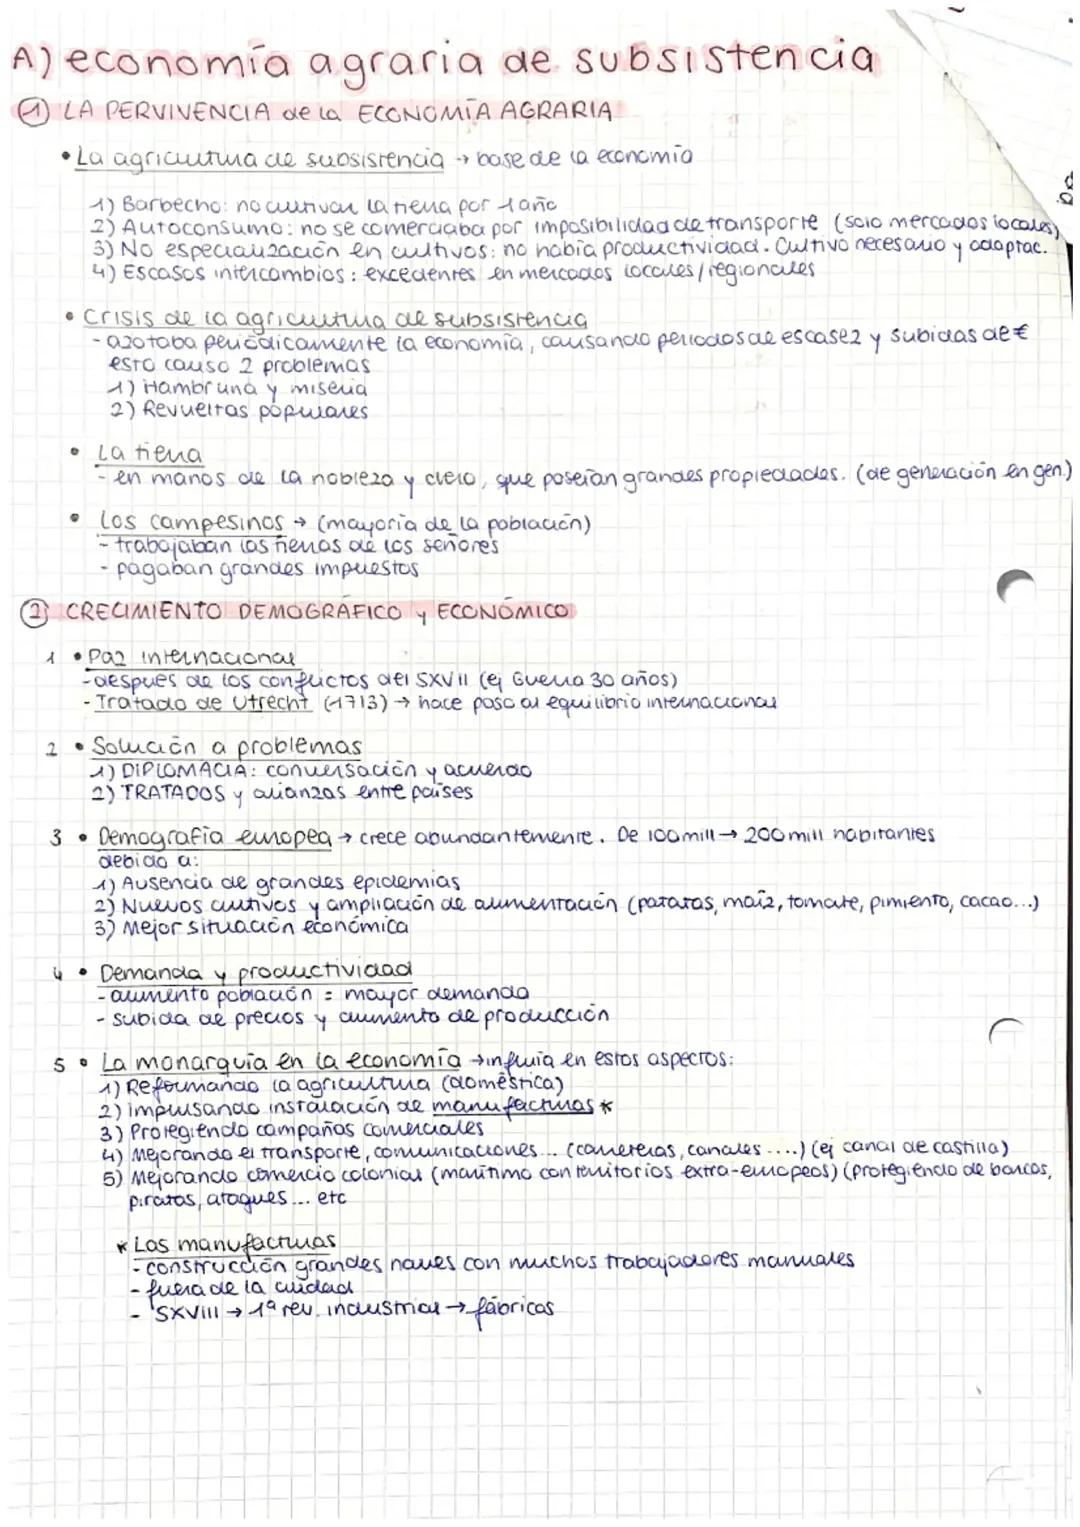 A) economía agraria de subsistencia
1 LA PERVIVENCIA de la ECONOMÍA AGRARIA
• La agricultura de subsistencia → base de la economía
1) Barbecho: no cultivar la tierra por 1 año
2) Autoconsumo: no se comerciaba por imposibilidad de transporte (solo mercados locales)
3) No especialización en cultivos: no había productividad. Cultivo necesario y adaptac.
4) Escasos intercambios: excedentes en mercados locales/regionales
• Crisis de la agricultura de subsistencia
- azotaba periódicamente la economía, causando periodos de escasez y subidas de €
esto causo 2 problemas
1) Hambruna y miseria
2) Revueltas populares
• La tierra
- en manos de la nobleza y clero, que poseían grandes propiedades. (de generación en gen.)
• Los campesinos → (mayoría de la población)
- trabajaban las tierras de los señores
- pagaban grandes impuestos
2 CRECIMIENTO DEMOGRÁFICO y ECONÓMICO
1 • Paz internacional
- después de los conflictos del SXVII (ej Guerra 30 años)
- Tratado de Utrecht (1713) → hace paso al equilibrio internacional
2 • Solución a problemas
1) DIPLOMACIA: conversación y acuerdo
2) TRATADOS y alianzas entre países
3 • Demografía europea → crece abundantemente. De 100mill → 200mill habitantes
debido a:
1) Ausencia de grandes epidemias
2) Nuevos cultivos y ampliación de alimentación (patatas, maíz, tomate, pimiento, cacao...)
3) Mejor situación económica
4 • Demanda y productividad
- aumento población = mayor demanda
- subida de precios y aumento de producción
5 • La monarquía en la economía → influía en estos aspectos:
1) Reformando la agricultura (doméstica)
2) impulsando instalación de manufacturas *
3) Protegiendo campañas comerciales
4) Mejorando el transporte, comunicaciones... (carreteras, canales ....) (ej canal de castilla)
5) Mejorando comercio colonial (marítimo con territorios extra-europeos) (protegiendo de barcos,
piratas, ataques... etc
* Las manufacturas
- construcción grandes naves con muchos trabajadores manuales
- fuera de la cuidad
- SXVIII → 1ª rev. industrial → fábricas